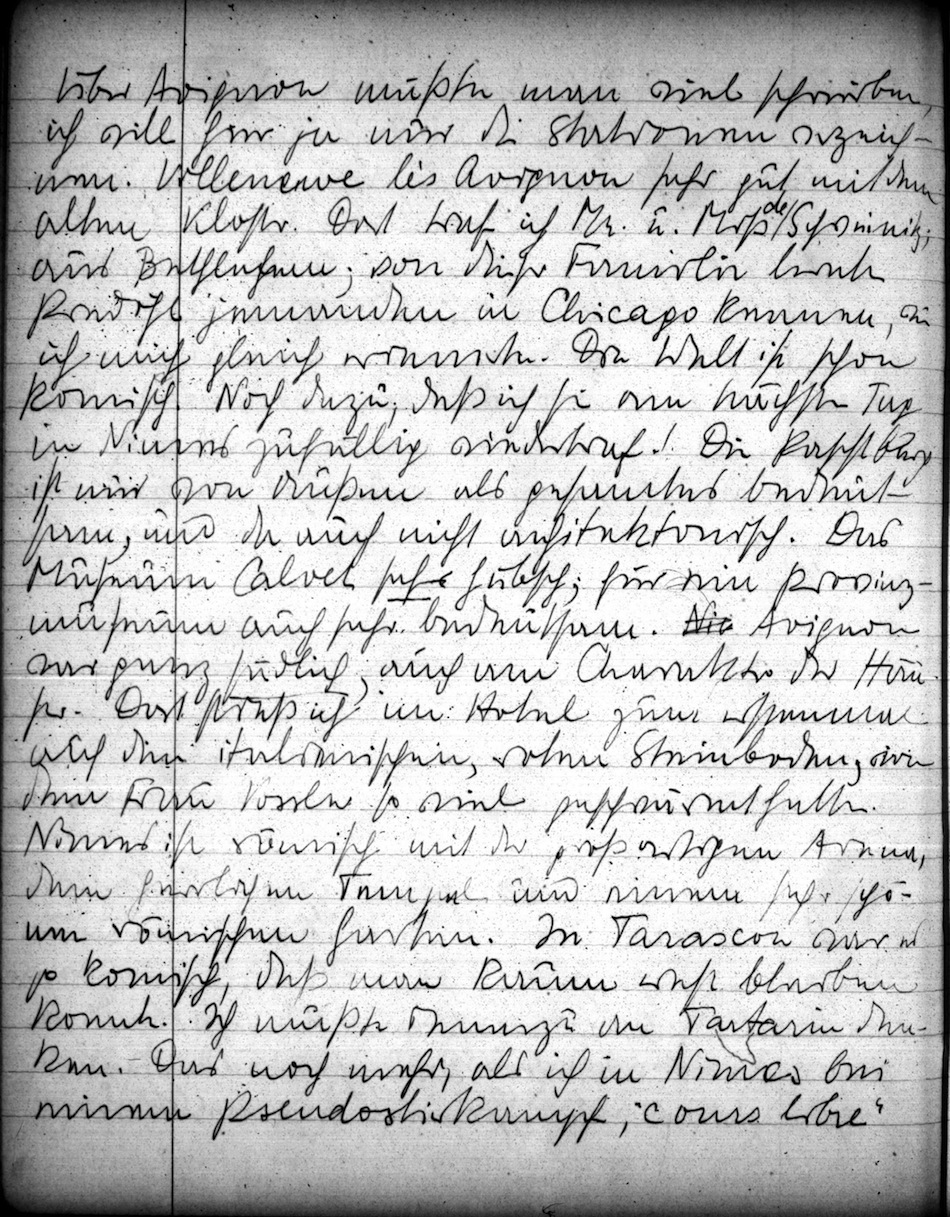 Über Avignon müßte man viel schreiben,
ich will hier ja nur die Stationen verzeich-
nen. Villeneuve lès Avignon sehr gut mit dem
alten Kloster. Dort traf ich Mr. u. Mrß de Schweinitz,
aus Bethlehem; von dieser Familie lernte
jemanden in Chicago kennen,
ich mich gleich erinnerte. Die Welt ist schon
komisch. Noch dazu, daß ich sie am nächsten Tag
in Nimes zufällig wiedertraf! Die Papstburg
ist nur von außen als gesamtes bedeut-
sam, und da auch nicht architektonisch. Das
Museum Calvet sehr hübsch; für ein Provinz-
museum auch sehr bedeutsam. Avignon
war ganz südlich, auch am Charakter der Häu-
ser. Dort stieß ich im Hotel zum erstenmal
auf den italienischen, roten Steinboden, von
dem Frau Vossler so viel geschwärmt hatte.
Nimes ist römisch mit der großartigen Arena,
dem herrlichen Tempel und einem sehr schö-
nen römischen Garten. In Tarascon war es
so komisch, daß man kaum ernst bleiben
konnte. Ich mußte immerzu an Tartarin den-
ken. Das noch mehr, als ich in Nimes bei
einem Pseudostierkampf, "cours libre"